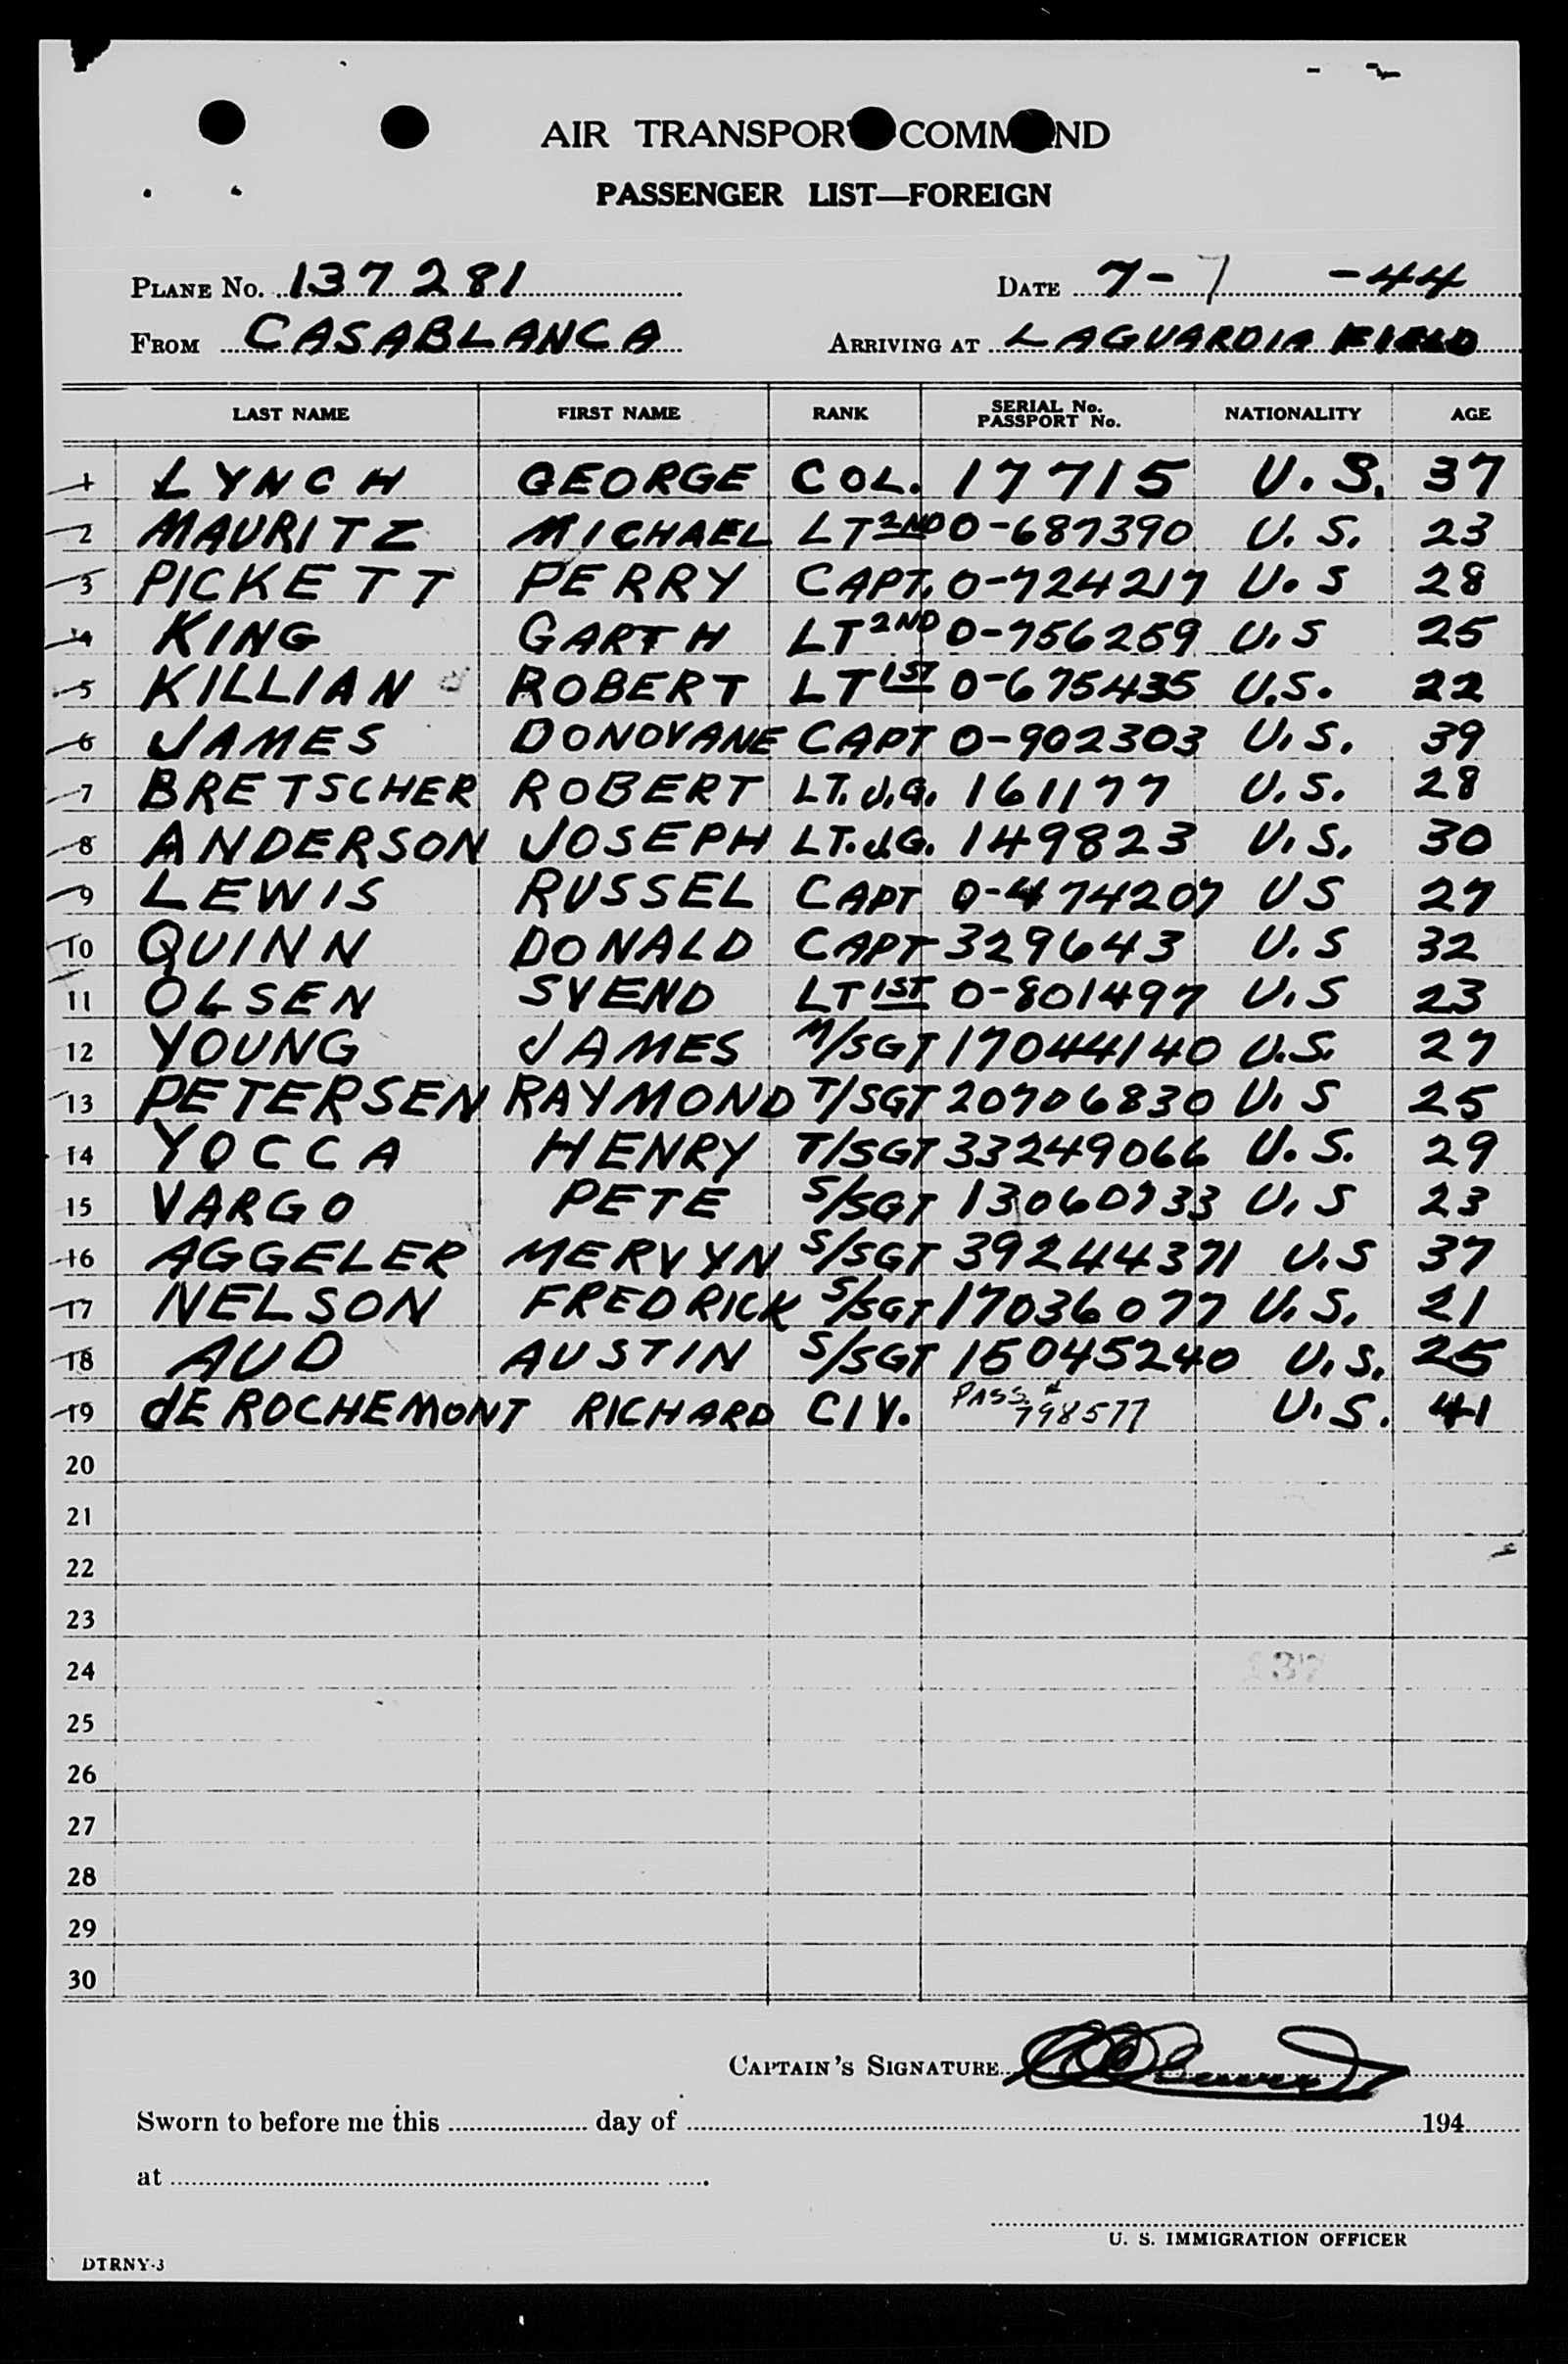 AIR TRANSPORT COMMAND
PASSENGER LIST—FOREIGN
PLANE No. 137281 DATE 7-7-44
FROM CASABLANCA ARRIVING AT LAGUARDIA FIELD
LAST NAME FIRST NAME RANK SERIAL No. PASSPORT No. NATIONALITY AGE
1 LYNCH GEORGE COL. 17715 U.S. 37
2 MAURITZ MICHAEL LT 2ND O-687390 U.S. 23
3 PICKETT PERRY CAPT. O-724217 U.S 28
4 KING GARTH LT 2ND O-756259 U.S 25
5 KILLIAN ROBERT LT 1ST O-675435 U.S. 22
6 JAMES DONOVANE CAPT O-902303 U.S. 39
7 BRETSCHER ROBERT LT.J.G. 161177 U.S. 28
8 ANDERSON JOSEPH LT.J.G. 149823 U.S. 30
9 LEWIS RUSSEL CAPT O-474207 US 27
10 QUINN DONALD CAPT 329643 U.S 32
11 OLSEN SVEND LT 1ST O-801497 U.S 23
12 YOUNG JAMES M/SGT 17044140 U.S. 27
13 PETERSEN RAYMOND T/SGT 20706830 U.S 25
14 YOCCA HENRY T/SGT 33249066 U.S. 29
15 VARGO PETE S/SGT 13060733 U.S 23
16 AGGELER MERVYN S/SGT 39244371 U.S 37
17 NELSON FREDRICK S/SGT 17036077 U.S. 21
18 AUD AUSTIN S/SGT 15045240 U.S. 25
19 dE ROCHEMONT RICHARD CIV. PASS # 798577 U.S. 41
20
21
22
23
24
25
26
27
28
29
30
CAPTAIN'S SIGNATURE
Sworn to before me this day of 194
at
U. S. IMMIGRATION OFFICER
DTRNY-3